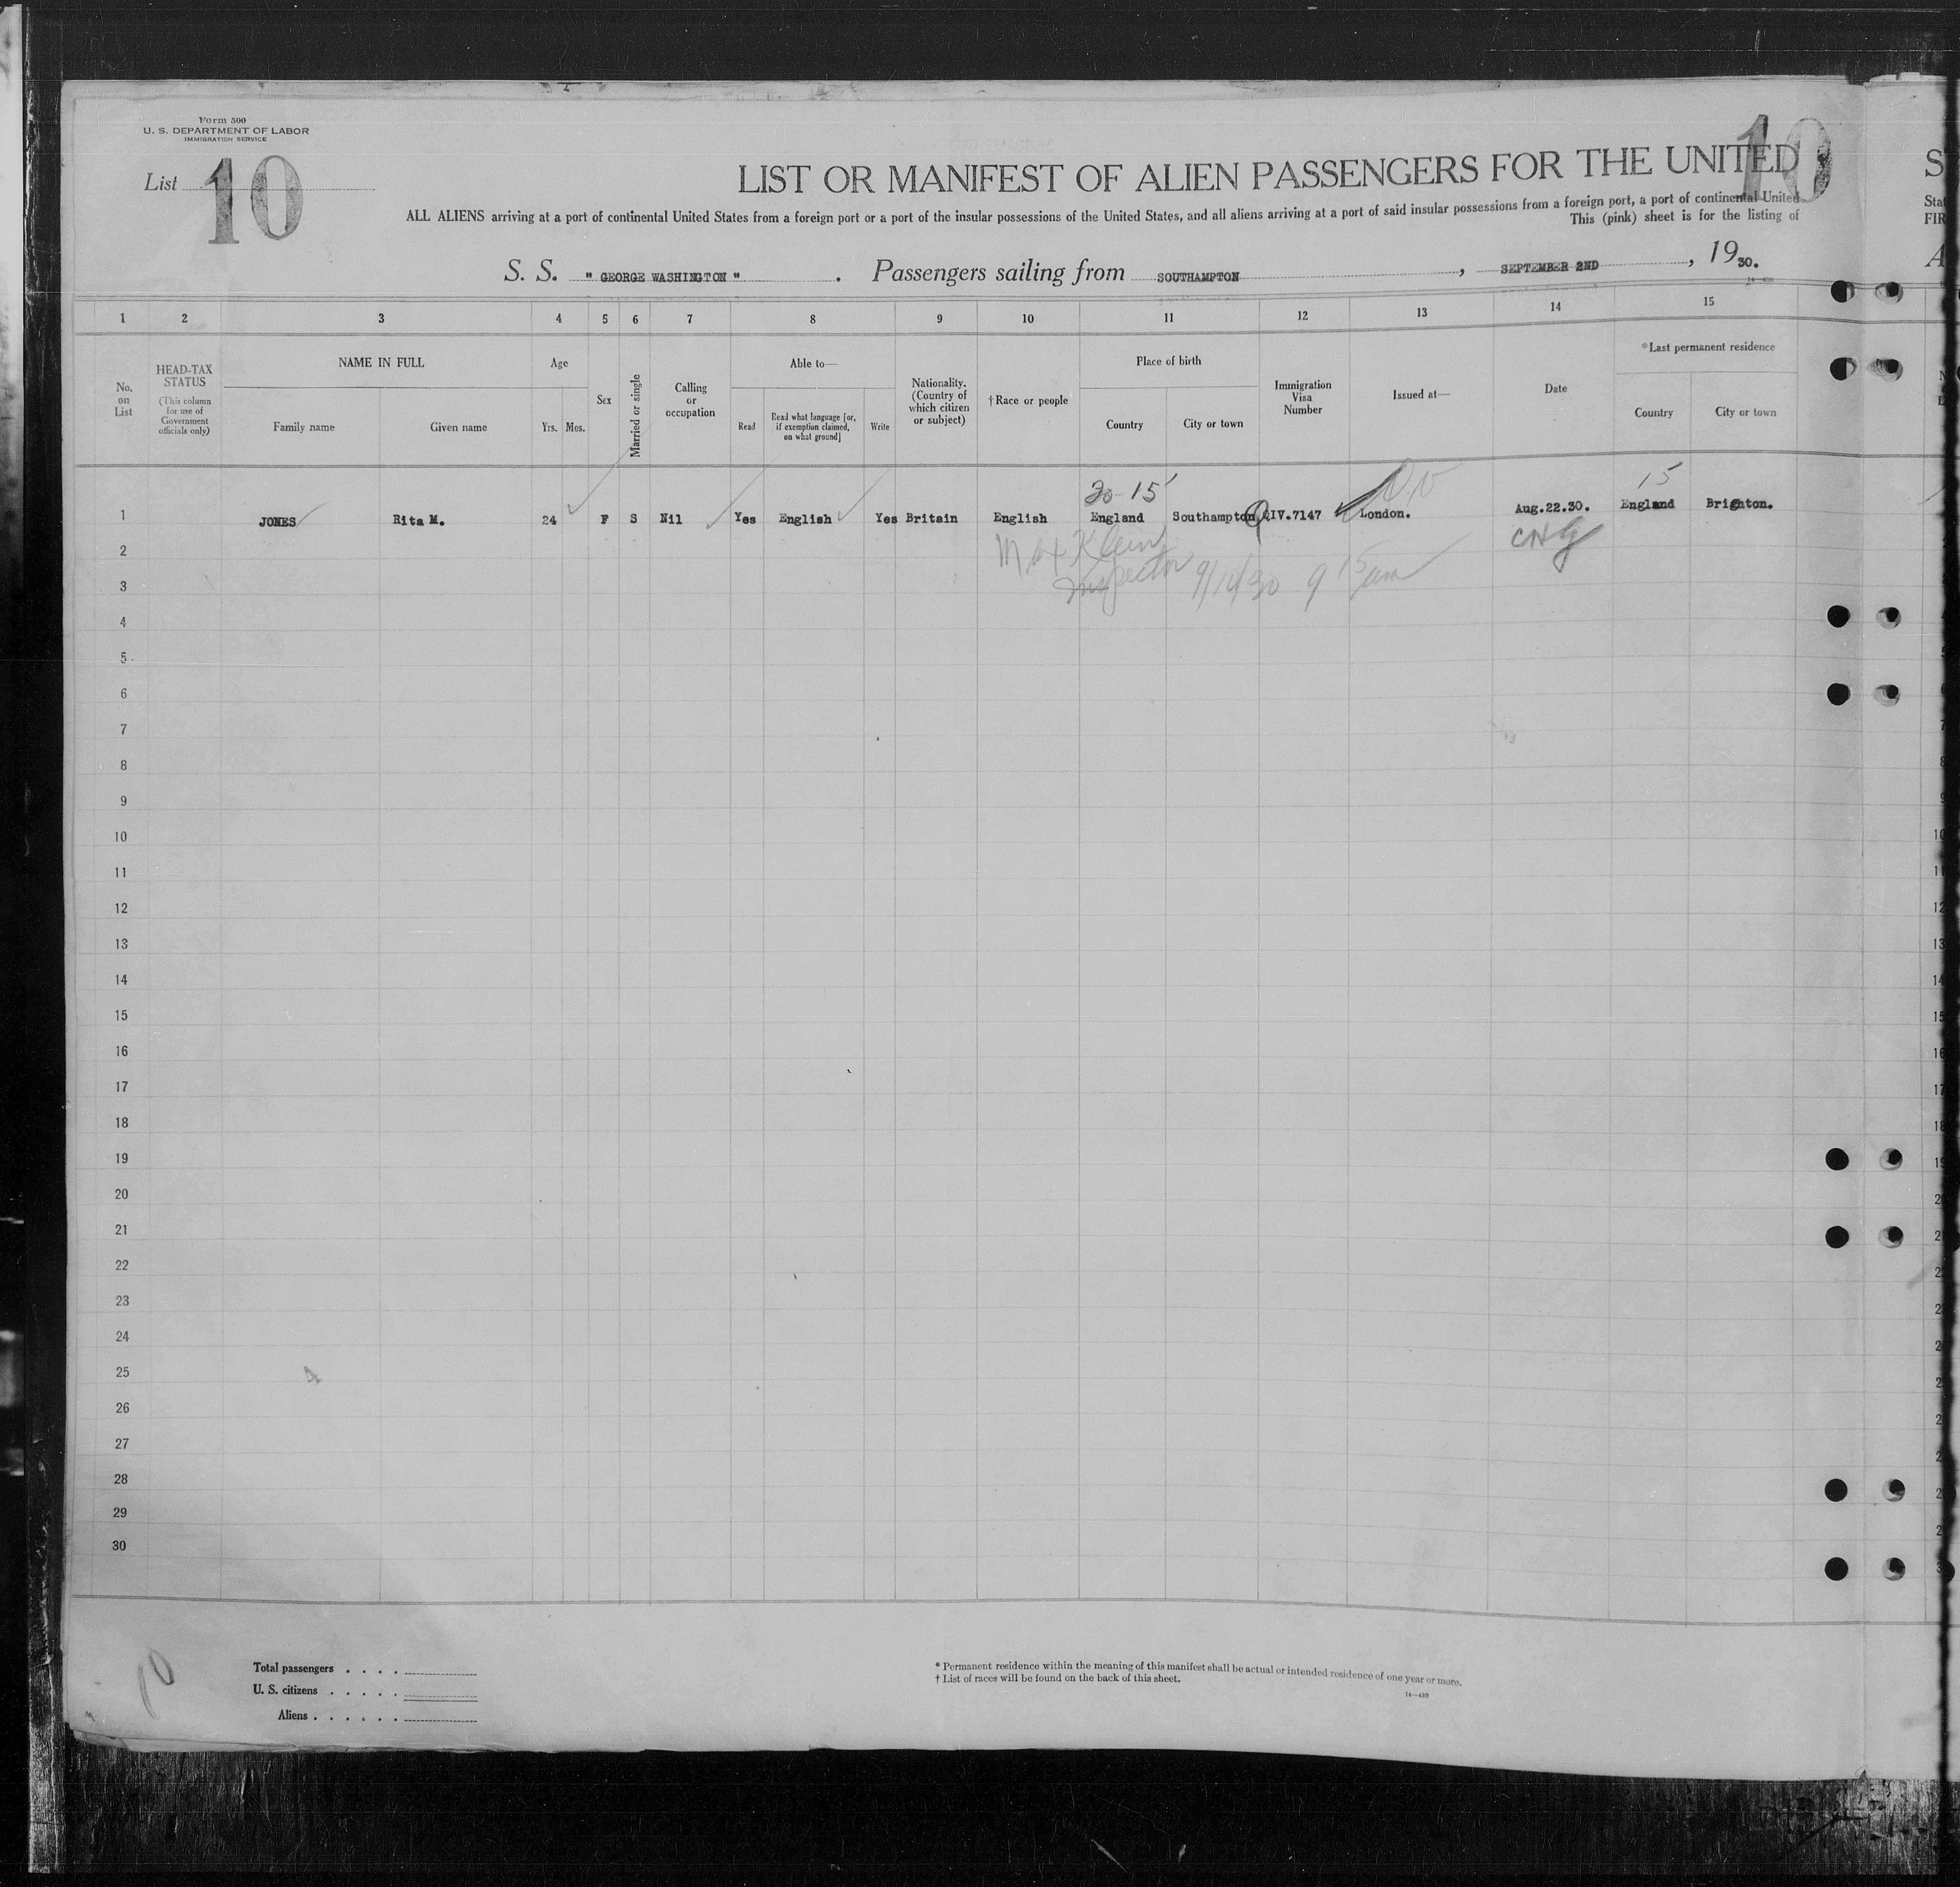 Form 500
U. S. DEPARTMENT OF LABOR
IMMIGRATION SERVICE
List 10
10
LIST OR MANIFEST OF ALIEN PASSENGERS FOR THE UNITED
S
ALL ALIENS arriving at a port of continental United States from a foreign port or a port of the insular possessions of the United States, and all aliens arriving at a port of said insular possessions from a foreign port, a port of continental United
Stat
This (pink) sheet is for the listing of
FIR
S. S. " GEORGE WASHINGTON " . Passengers sailing from SOUTHAMPTON , SEPTEMBER 2ND , 1930.
A
1 2 3 4 5 6 7 8 9 10 11 12 13 14 15
No. on List
HEAD-TAX STATUS (This column for use of Government officials only)
NAME IN FULL
Family name
Given name
Age
Yrs. Mos.
Sex
Married or single
Calling or occupation
Able to—
Read
Read what language [or, if exemption claimed, on what ground]
Write
Nationality. (Country of which citizen or subject)
† Race or people
Place of birth
Country
City or town
Immigration Visa Number
Issued at—
Date
* Last permanent residence
Country
City or town
30-15
15
1 JONES Rita M. 24 F S Nil Yes English Yes Britain English England Southampton QIV.7147 London. Aug.22.30. England Brighton.
Max Klein
Inspector 9/10/30 9 15 am
2
3
4
5
6
7
8
9
10
11
12
13
14
15
16
17
18
19
20
21
22
23
24
25
26
27
28
29
30
10
Total passengers . . . .
U. S. citizens . . . . .
Aliens . . . . . .
* Permanent residence within the meaning of this manifest shall be actual or intended residence of one year or more.
† List of races will be found on the back of this sheet.